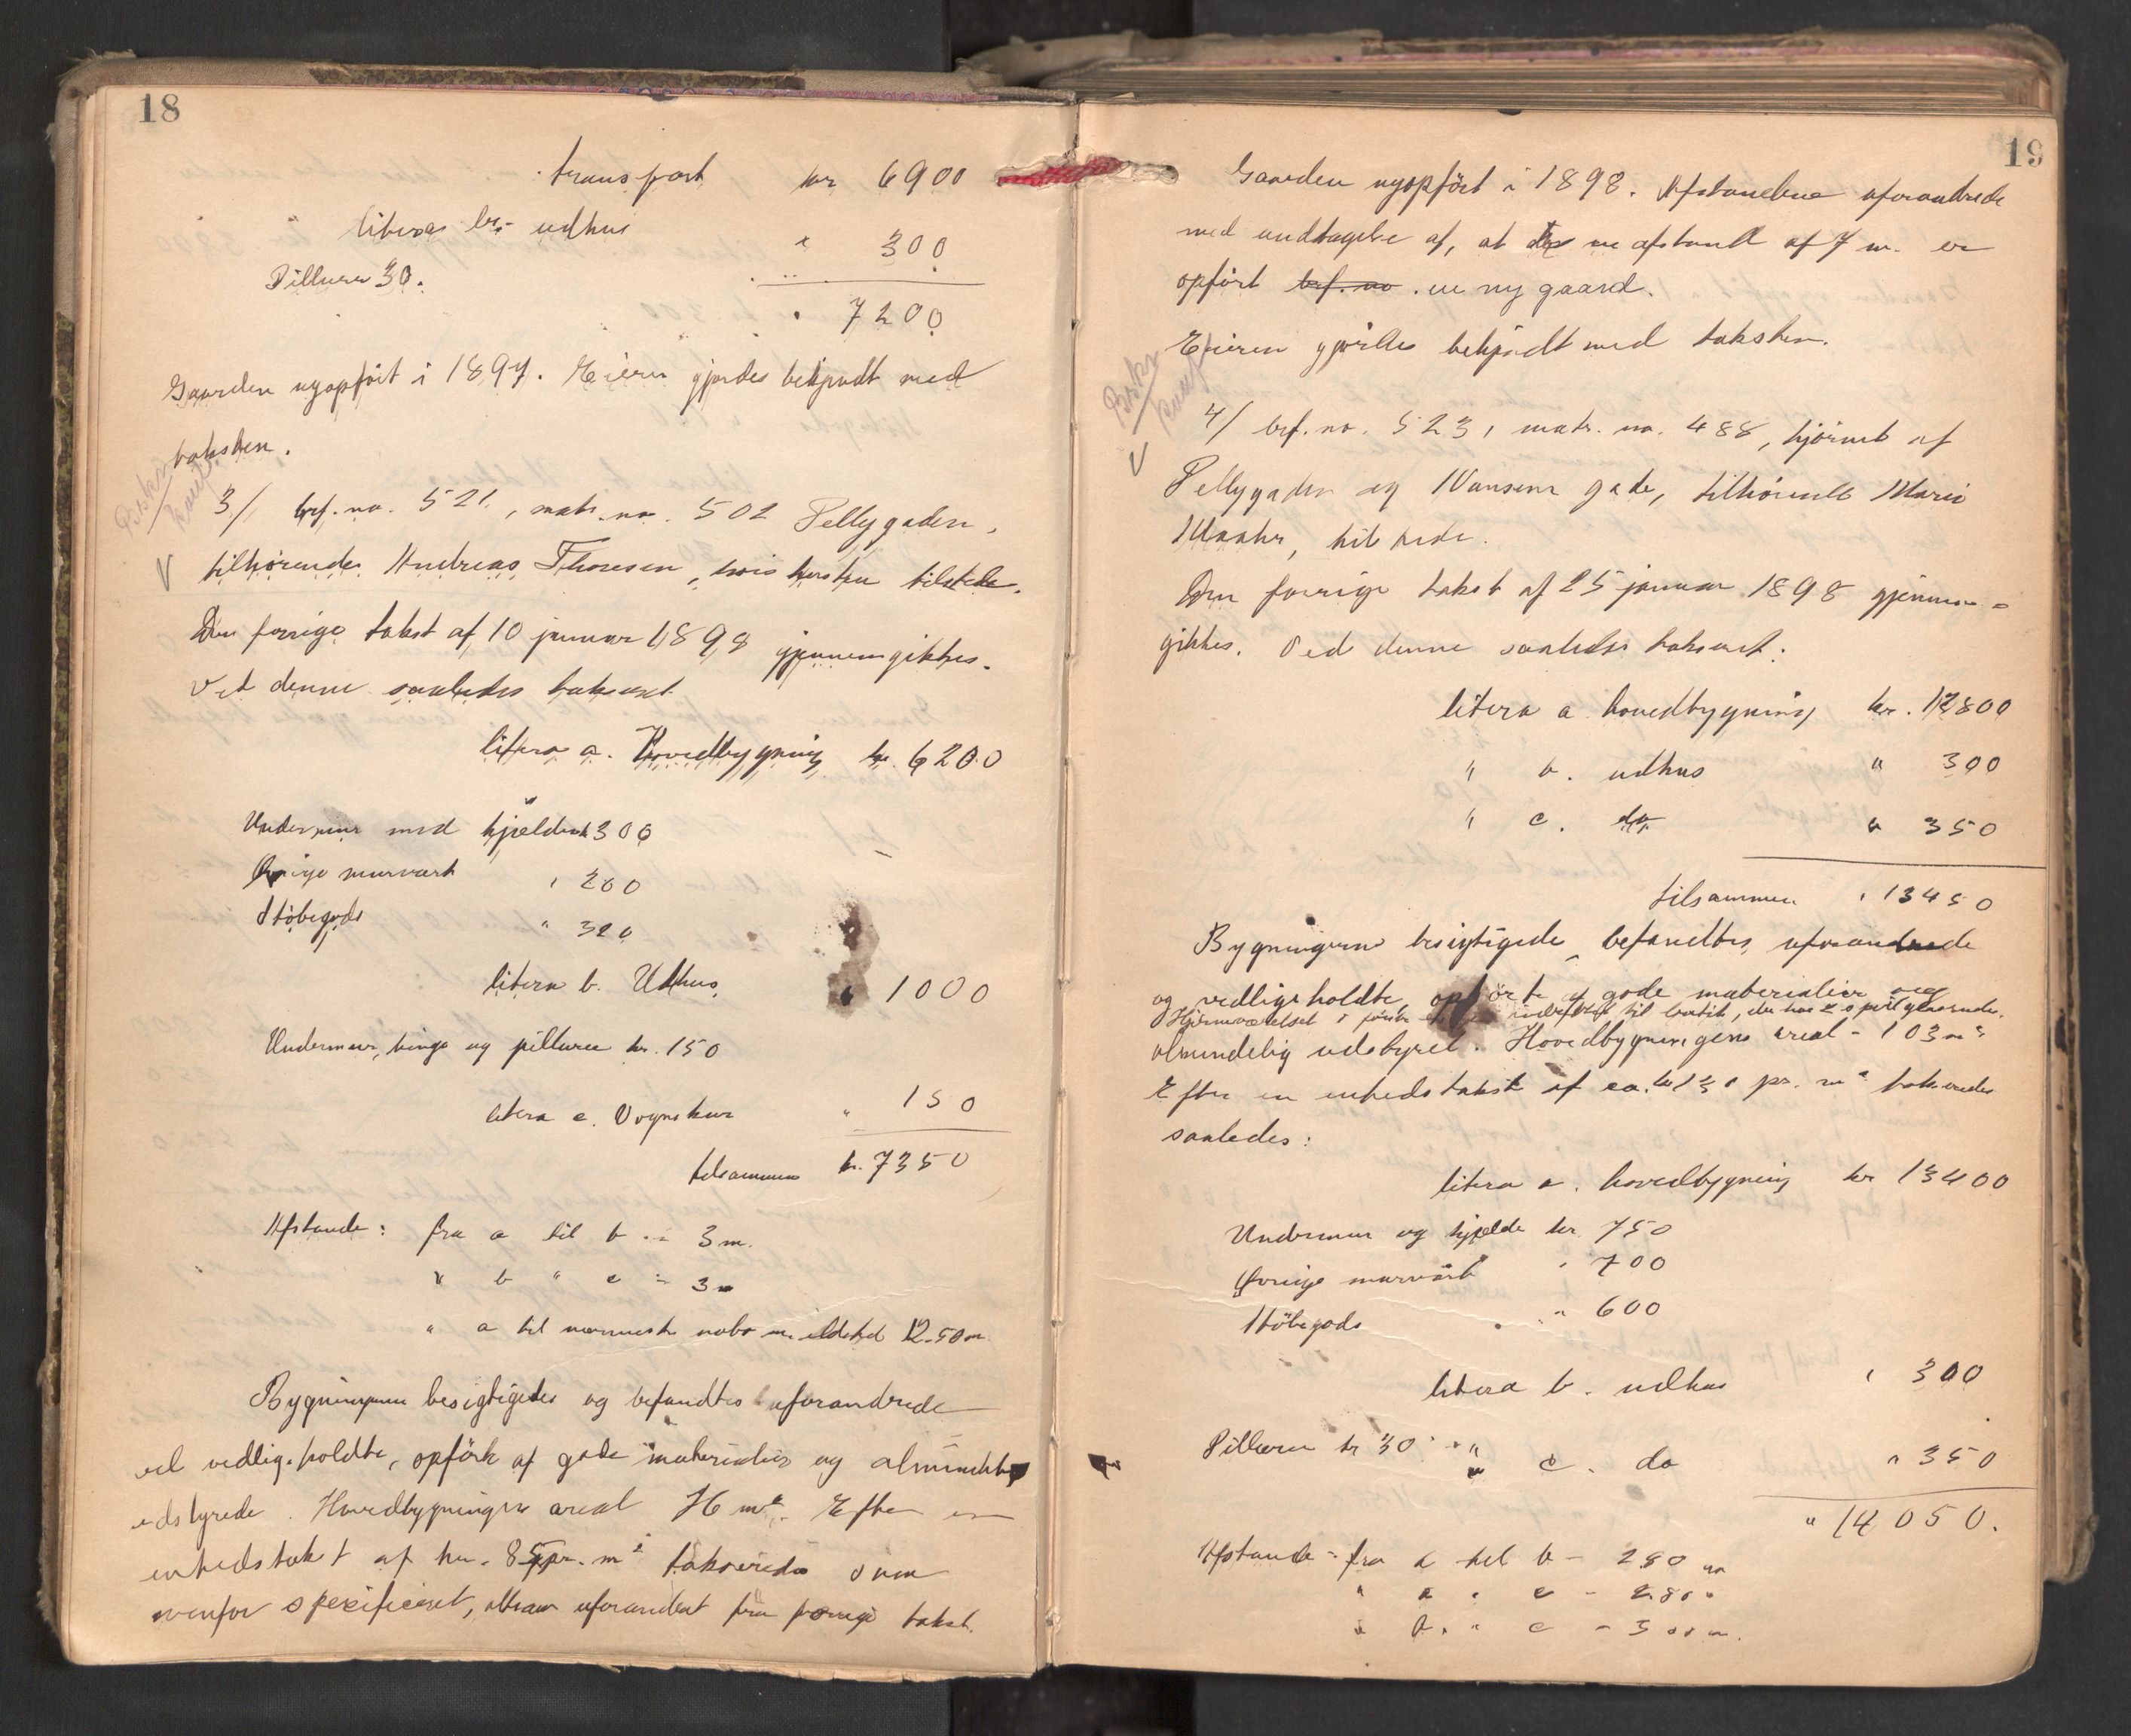 18
transport kr 6900
litera b. udhus " 300
Pillarer 30.
" 7200
Gaarden nyopført i 1897. Eieren gjordes bekjendt med
taksten.
3/ brf. no. 521, matr. no. 502 Pellygaden,
tilhørende Andreas Thoresen, hvis hustru tilstede.
Den forrige takst af 10 januar 1898 gjennemgikkes.
Ved denne saaledes takseret
litera a. Hovedbygning kr. 6200
Undermur med kjelder 300
Øvrige murværk " 260
Støbegods " 320
litera b. Udhus " 1000
Undermur, binge og pillarer kr. 150
litera c. Vognskur " 150
tilsammen kr. 7350
Afstande: fra a til b = 3 m.
" b " c = 3 "
" a til nærmeste nabo m. ildsted 12.50 m.
Bygningerne besigtigedes og befandtes uforandrede
vel vedligeholdte, opførte af gode materialier og almindelig
udstyrede. Hovedbygningens areal 76 m². Efter en
enhedstakst af kr. 85 pr. m² takseredes som
ovenfor specificeret, altsaa uforandret fra forrige takst.
19
Gaarden nyopført i 1898. Afstandene uforandrede
med undtagelse af, at der en afstand af 7 m. er
opført brf. no. en ny gaard.
Eieren gjordes bekjendt med taksten.
4/ brf. no. 523, matr. no. 488, hjørnet af
Pellygaden og Nansens gade, tilhørende Marie
tilstede.
Den forrige takst af 25 januar 1898 gjennem=
gikkes. Ved denne saaledes takseret:
litera a hovedbygning kr. 12800
" b. udhus " 300
" c. do " 350
tilsammen " 13450
Bygningerne besigtigede, befandtes uforandrede
og vedligeholdte, opførte af gode materialier og
Hjørneværelset i første indrettet til butik, der har 2 speilglasruder.
almindelig udstyret. Hovedbygningens areal = 103 m²
Efter en enhedstakst af ca. kr 130 pr. m² takseredes
saaledes:
litera a. hovedbygning kr 13400
Undermur og kjelder kr. 750
Øvrige murværk " 700
Støbegods " 600
litera b. udhus " 300
Pillarer kr 30 " c. do " 350
" 14050.
Afstande = fra a til b = 280 m
" a " c = 2.80 "
" b. " c = 300 m.